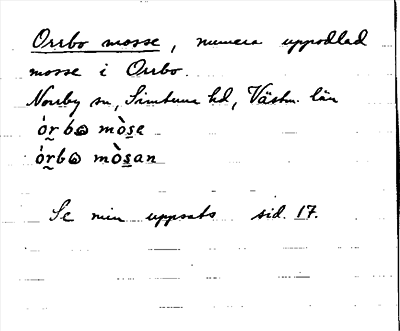 Orrbo mosse, numera uppodlad
mosse i Orrbo.
Norrby sn, Simtuna hd, Västm. län
órbɷ mòse
órbɷ mòsan
Se min uppsats sid. 17.